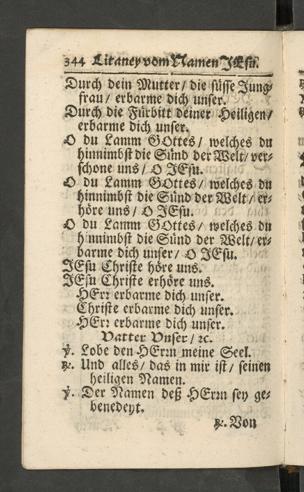 344 Litaney vom Namen JEsu.
Durch dein Mutter/ die süsse Jung-
frau/ erbarme dich unser.
Durch die Fürbitt deiner Heiligen/
erbarme dich unser.
O du Lamm GOttes/ welches du
hinnimbst die Sünd der Welt/ ver-
schone uns/ O JEsu.
O du Lamm GOttes/ welches du
hinnimbst die Sünd der Welt/ er-
höre uns/ O JEsu.
O du Lamm GOttes/ welches du
hinnimbst die Sünd der Welt/ er-
barme dich unser/ O JEsu.
JEsu Christe höre uns.
JEsu Christe erhöre uns.
HErr erbarme dich unser.
Christe erbarme dich unser.
HErr erbarme dich unser.
Vatter Unser/ ꝛc.
℣. Lobe den HErrn meine Seel.
℟. Und alles/ das in mir ist/ seinen
heiligen Namen.
℣. Der Namen deß HErrn sey ge-
benedeyt.
℟. Von